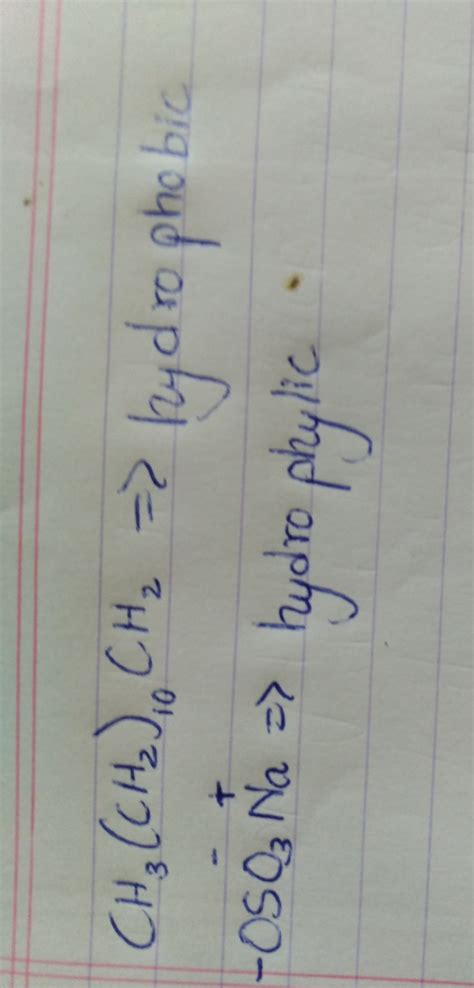 CH₃(CH₂)₁₀CH₂ => hydrophobic
-OSO₃⁻Na⁺ => hydrophylic